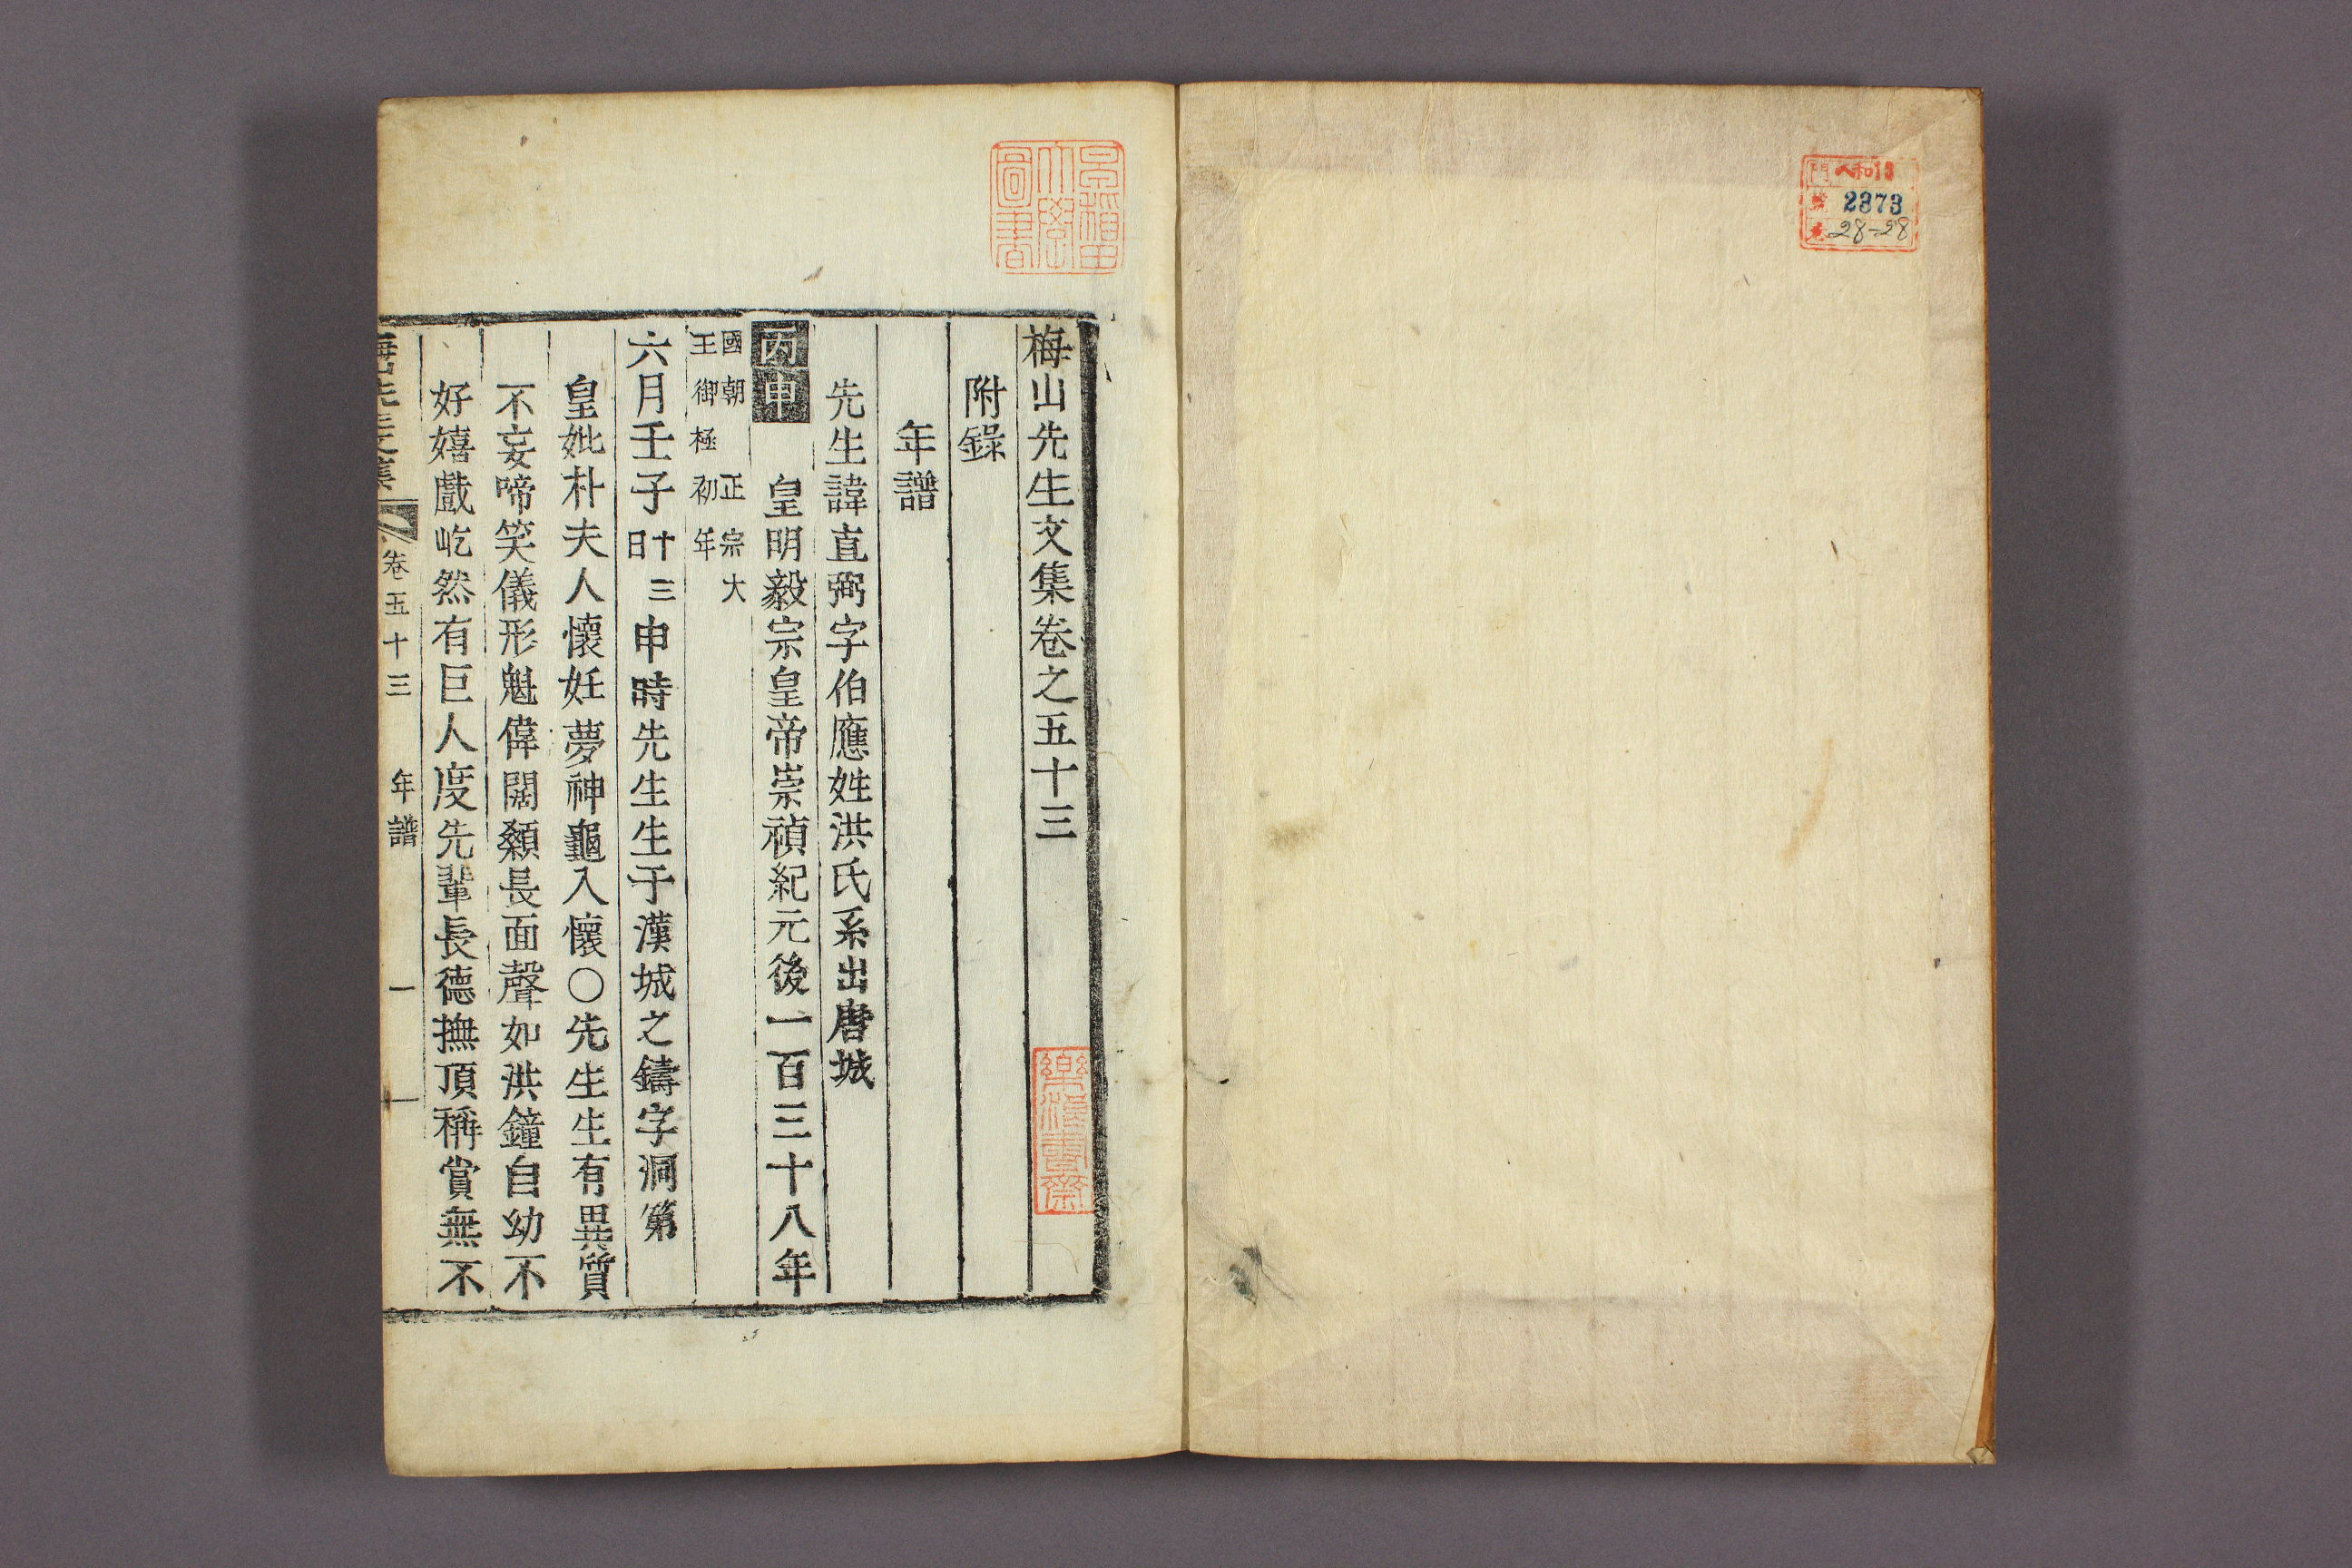 2373
28-28
早稲田
大學
圖書
梅山先生文集卷之五十三
附錄
年譜
先生諱直弼字伯應姓洪氏系出唐城
丙申 皇明毅宗皇帝崇禎紀元後一百三十八年
國朝 正宗大
王御極初年
六月壬子十三日申時先生生于漢城之鑄字洞第
皇妣朴夫人懷妊夢神龜入懷○先生生有異質
不妄啼笑儀形魁偉闊顙長面聲如洪鐘自幼不
好嬉戲屹然有巨人度先輩長德撫頂稱賞無不
卷五十三 年譜 一
書齋